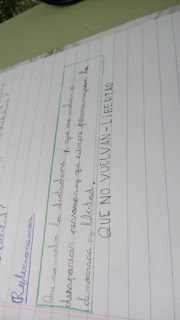 Reflexionamos
Que no vuelva la dictadura y que no vuelvan a
desaparecer personas y que siempre permanezca la
democracia y libertad.
QUE NO VUELVAN-LIBERTAD